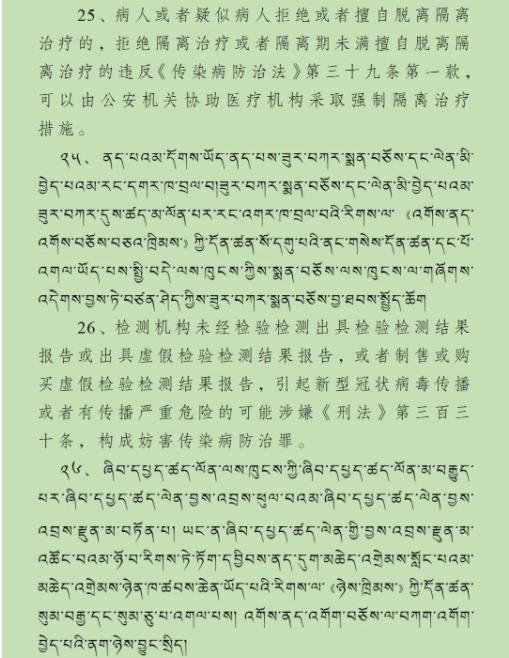 25、病人或者疑似病人拒绝或者擅自脱离隔离
治疗的，拒绝隔离治疗或者隔离期未满擅自脱离隔
离治疗的违反《传染病防治法》第三十九条第一款，
可以由公安机关协助医疗机构采取强制隔离治疗
措施。
༢༥、ནད་པའམ་དོགས་ཡོད་ནད་པས་ཟུར་བཀར་སྨན་བཅོས་དང་ལེན་མི་
བྱེད་པའམ་རང་དགར་ཁ་བྲལ་བ།ཟུར་བཀར་སྨན་བཅོས་དང་ལེན་མི་བྱེད་པའམ་
ཟུར་བཀར་དུས་ཚད་མ་ལོན་པར་རང་འགར་ཁ་བྲལ་བའི་རིགས་ལ་《འགོས་ནད་
འགོས་བཅོས་བཅའ་ཁྲིམས་》ཀྱི་དོན་ཚན་སོ་དགུ་པའི་ནང་གསེས་དོན་ཚན་དང་པོ་
འགལ་ཡོད་པས་སྤྱི་བདེ་ལས་ཁུངས་ཀྱིས་སྨན་བཅོས་ལས་ཁུངས་ལ་གཞོགས་
འདེགས་བྱས་ཏེ་བཙན་ཤེད་ཀྱིས་ཟུར་བཀར་སྨན་བཅོས་བྱ་ཐབས་སྤྱོད་ཆོག
26、检测机构未经检验检测出具检验检测结果
报告或出具虚假检验检测结果报告，或者制售或购
买虚假检验检测结果报告，引起新型冠状病毒传播
或者有传播严重危险的可能涉嫌《刑法》第三百三
十条，构成妨害传染病防治罪。
༢༦、ཞིབ་དཔྱད་ཚད་ལོན་ལས་ཁུངས་ཀྱི་ཞིབ་དཔྱད་ཚད་ལོན་མ་བརྒྱུད་
པར་ཞིབ་དཔྱད་ཚད་ལེན་བྱས་འབྲས་ཕུལ་བའམ་ཞིབ་དཔྱད་ཚད་ལེན་བྱས་
འབྲས་རྫུན་མ་བཏོན་པ། ཡང་ན་ཞིབ་དཔྱད་ཚད་ལེན་གྱི་བྱས་འབྲས་རྫུན་མ་
འཚོང་བའམ་ཉོ་བ་རིགས་ཏེ་ཏོག་དབྱིབས་ནད་དུག་མཆེད་འགྲེམས་སློང་པའམ་
མཆེད་འགྲེམས་ཉེན་ཁ་ཚབས་ཆེན་ཡོད་པའི་རིགས་ལ་《ཉེས་ཁྲིམས་》ཀྱི་དོན་ཚན་
སུམ་བརྒྱ་དང་སུམ་ཅུ་པ་འགལ་པས། འགོས་ནད་འགོག་བཅོས་ལ་བཀག་འགོག་
བྱེད་པའི་ནག་ཉེས་བྱུང་སྲིད།